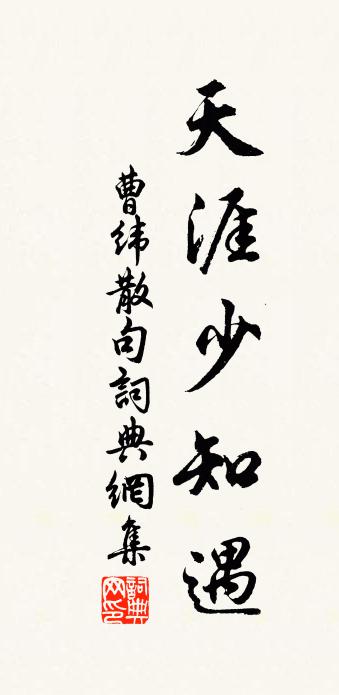 天涯少知遇
曹緯散句詞典網集
詞典网印